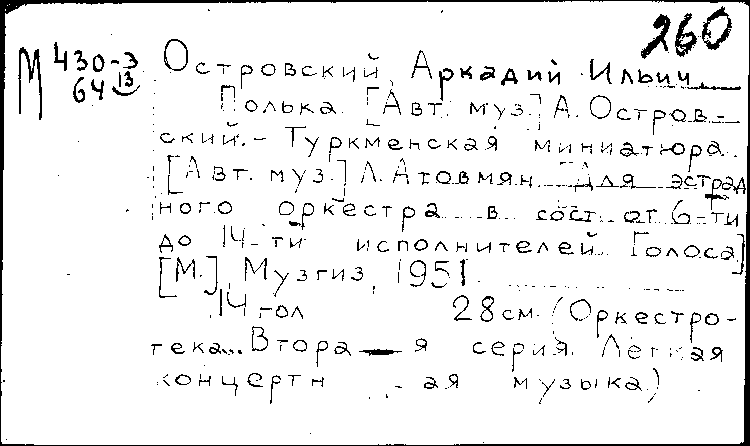 260
М 430-3
64 13
Островский, Аркадий Ильич.
Полька. [Авт. муз.] А. Остров-
ский. - Туркменская миниатюра.
[Авт. муз.] Л. Атовмян. [Для эстрад
ного оркестра в сост. от 6-ти
до 14-ти исполнителей. Голоса]
[М.], Музгиз, 1951.
14 гол 28 см. (Оркестро-
тека... Втора — я серия. Легкая
концертн - ая музыка)